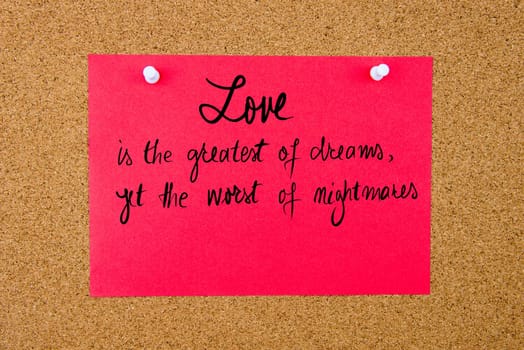 Love
is the greatest of dreams,
yet the worst of nightmares